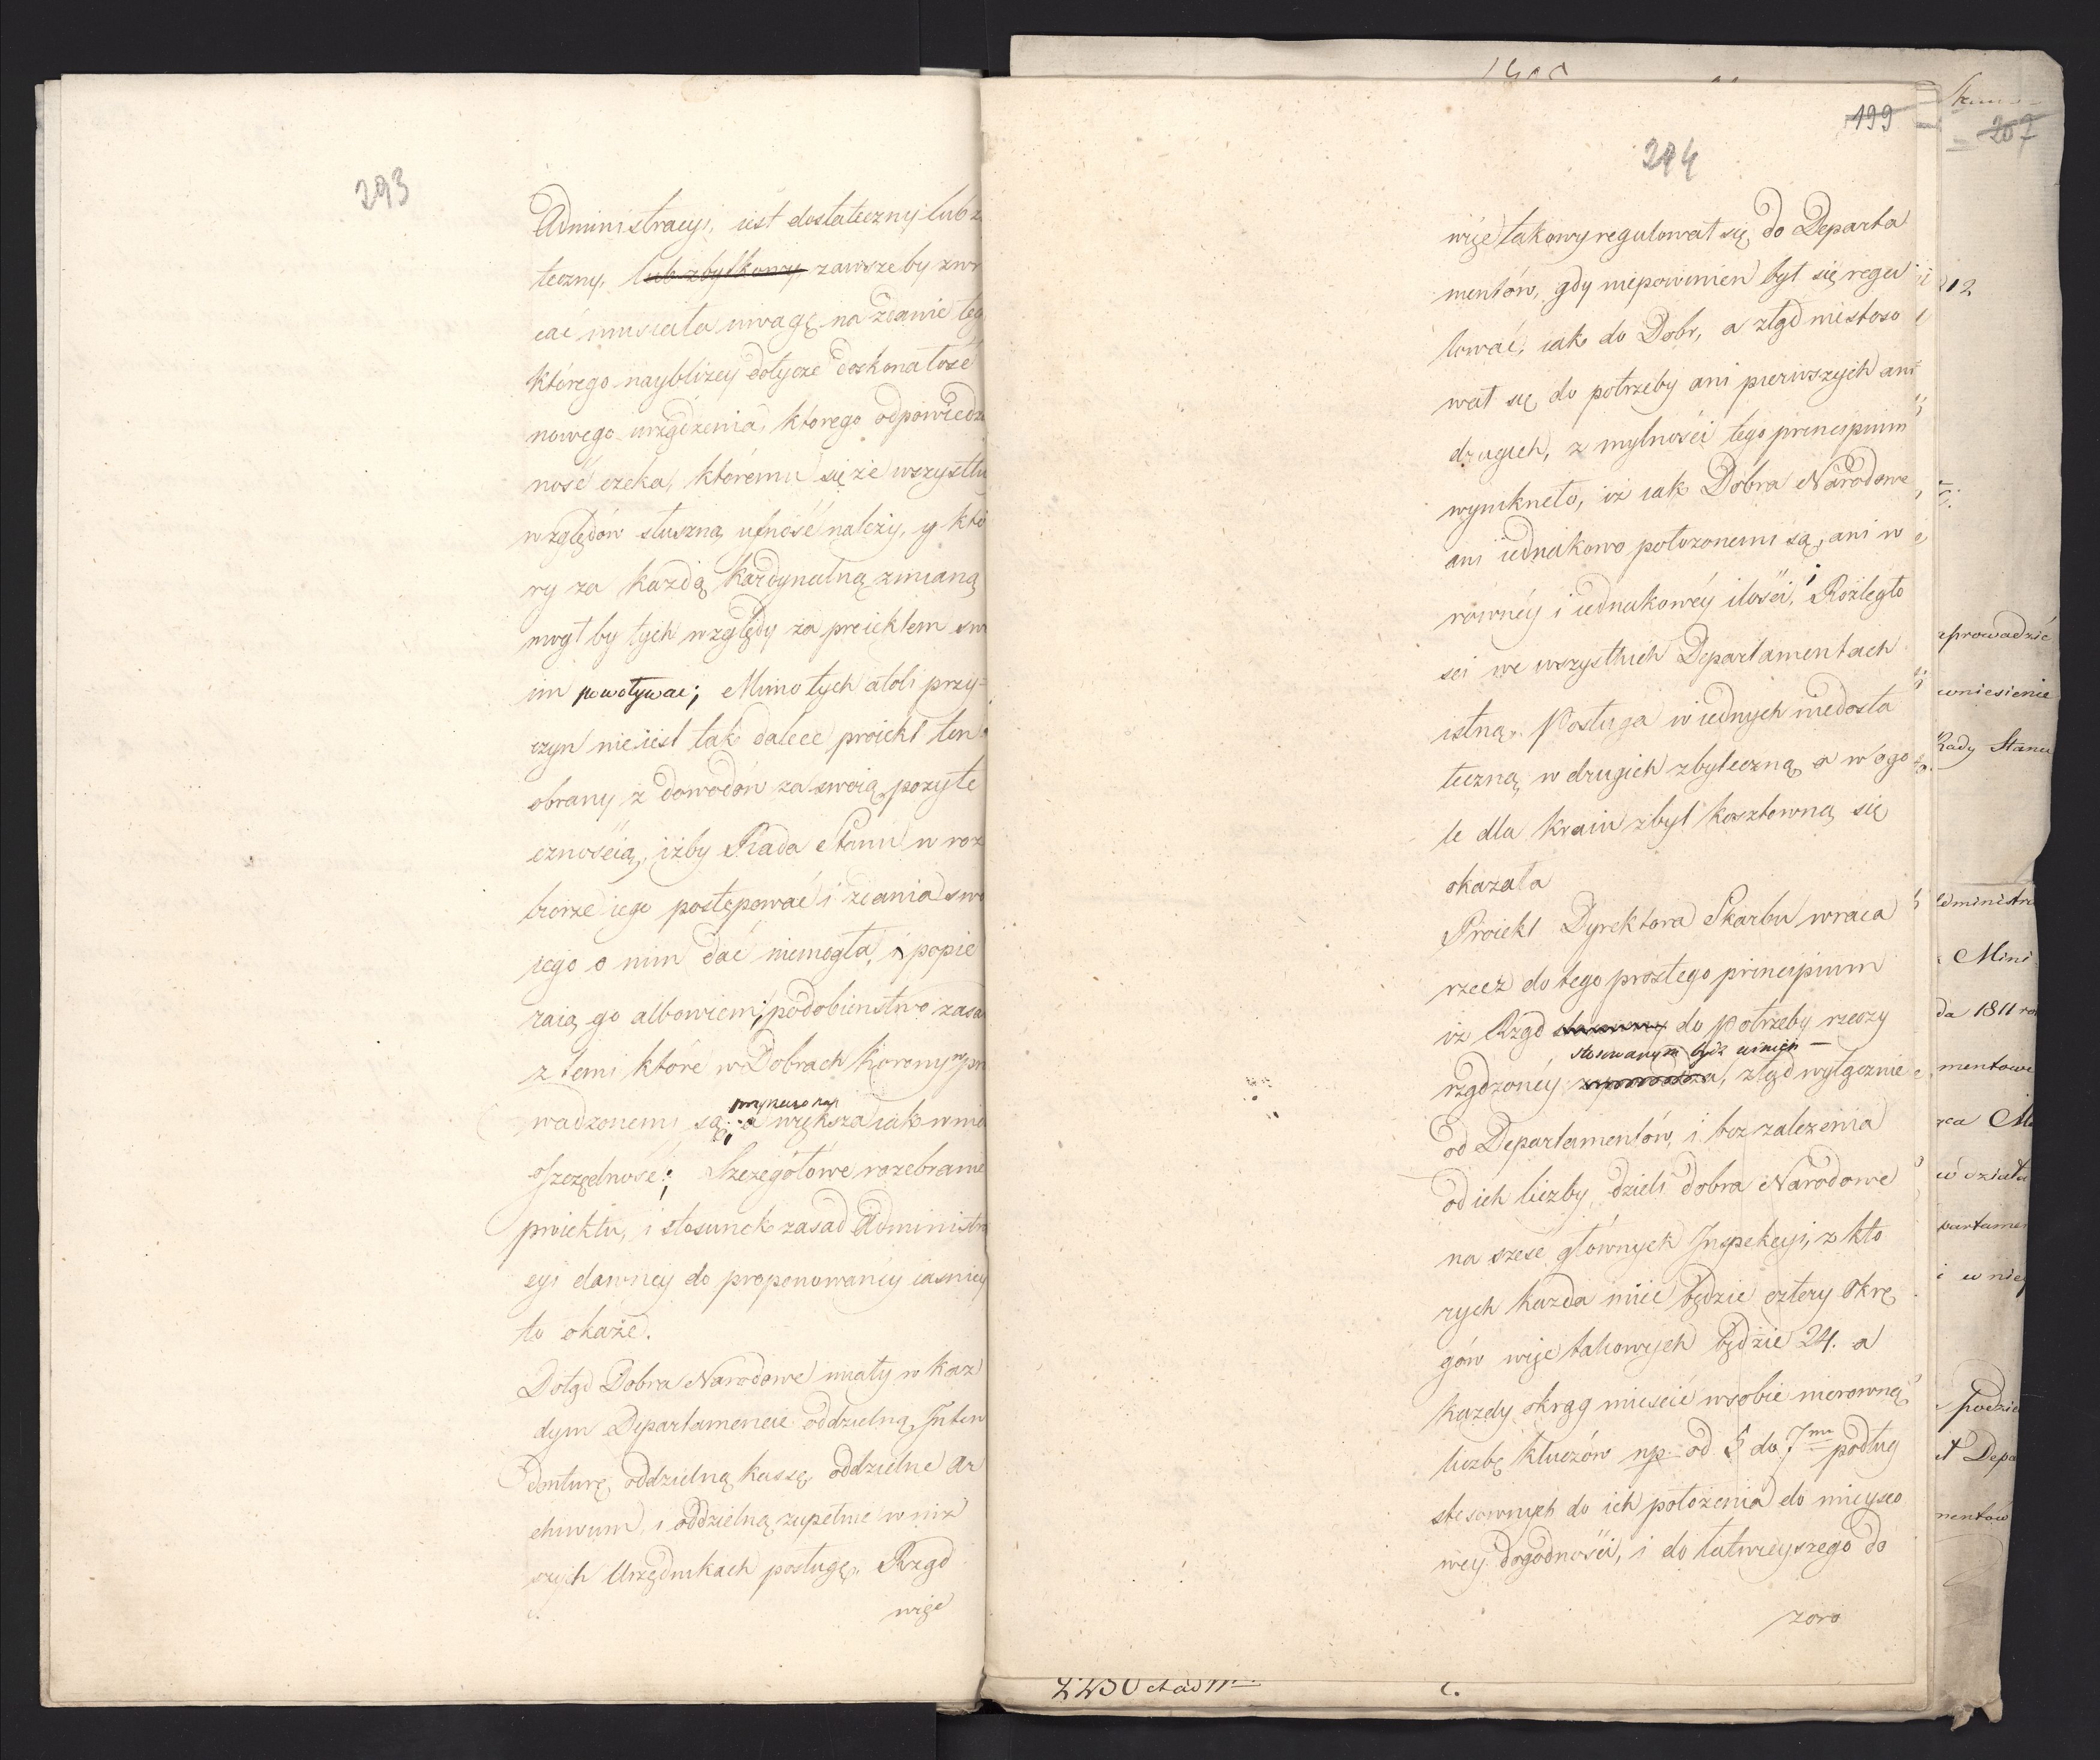 293
Administracyi, iest dostateczny lub z
teczny, lub zbytkowy zawsze by zwr
cać musiała uwagę na zdanie teg
którego naybliżey dotycze doskonałość
nowego urządzenia, którego odpowiedz
ność czeka, któremu się ze wszystki
względów słuszną ufność należy, y któ
ry za każdą kardynalną zmianą
mógł by tych względy za proiektem sw
im powoływać; Mimo tych atoli przy-
czyn nie iest tak dalece proiekt ten
obrany z dowodów za swoią pożyte
cznością, iżby Rada Stanu w roz
biorze iego postępować i zdania swo
iego o nim dać niemogła, i popie
raią go albowiem; podobieństwo zasa
z temi które w Dobrach Koronnych pro
wadzonemi są; a większa iak wnio
Oszczędność; Szczegółowe rozebranie
proiektu, i stosunek zasad Administra
cyi dawney do proponowaney iaśniey
to okaże.
Dotąd Dobra Narodowe miały w każ
dym Departamencie oddzielną Inten
denturę, oddzielną kassę, oddzielne Ar
chiwum, i oddzielną zupełnie w niż
szych Urzędnikach posługę. Rząd
więc
199
294
więc takowy regulował się do Departa
mentów, gdy niepowinien był się regu
lować, iak do Dobr, a ztąd niestoso
wał się do potrzeby ani pierwszych ani
drugich, z mylności tego principium
wynikneło, iż iak Dobra Narodowe
ani iednakowo położonemi są, ani w
równéy i iednakowéy ilości, i Rozległo
sci we wszystkich Departamentach
istną. Posługa w iednych niedosta
teczną, w drugich zbyteczną a w ogo
le dla kraiu zbyt kosztowną się
okazała
Proiekt Dyrektora Skarbu wraca
rzecz do tego prostego principium
iż Rząd do potrzeby rzeczy
stosowanym być winien
rządzonéy, ztąd wyłącznie
od Departamentów, i bez zależenia
od ich liczby dzieli dobra Narodowe
na sześć głównych Inspekcyi, z któ
rych każda mieć będzie cztery Okrę
gów więc takowych będzie 24. a
każdy okrąg mieścić w sobie nierowną
liczbę kluczów np. od 5 do 7miu podług
stosownych do ich położenia do mieysco
wey dogodności, i do łatwieyszego do
zoro
207
212
prowadzić
wniesienie
Rady Stanu
Administra
Mini
da 1811 ro
mentowe
działa
partamen
i w nie
podzie
t Depa
mentów
2230 et ad